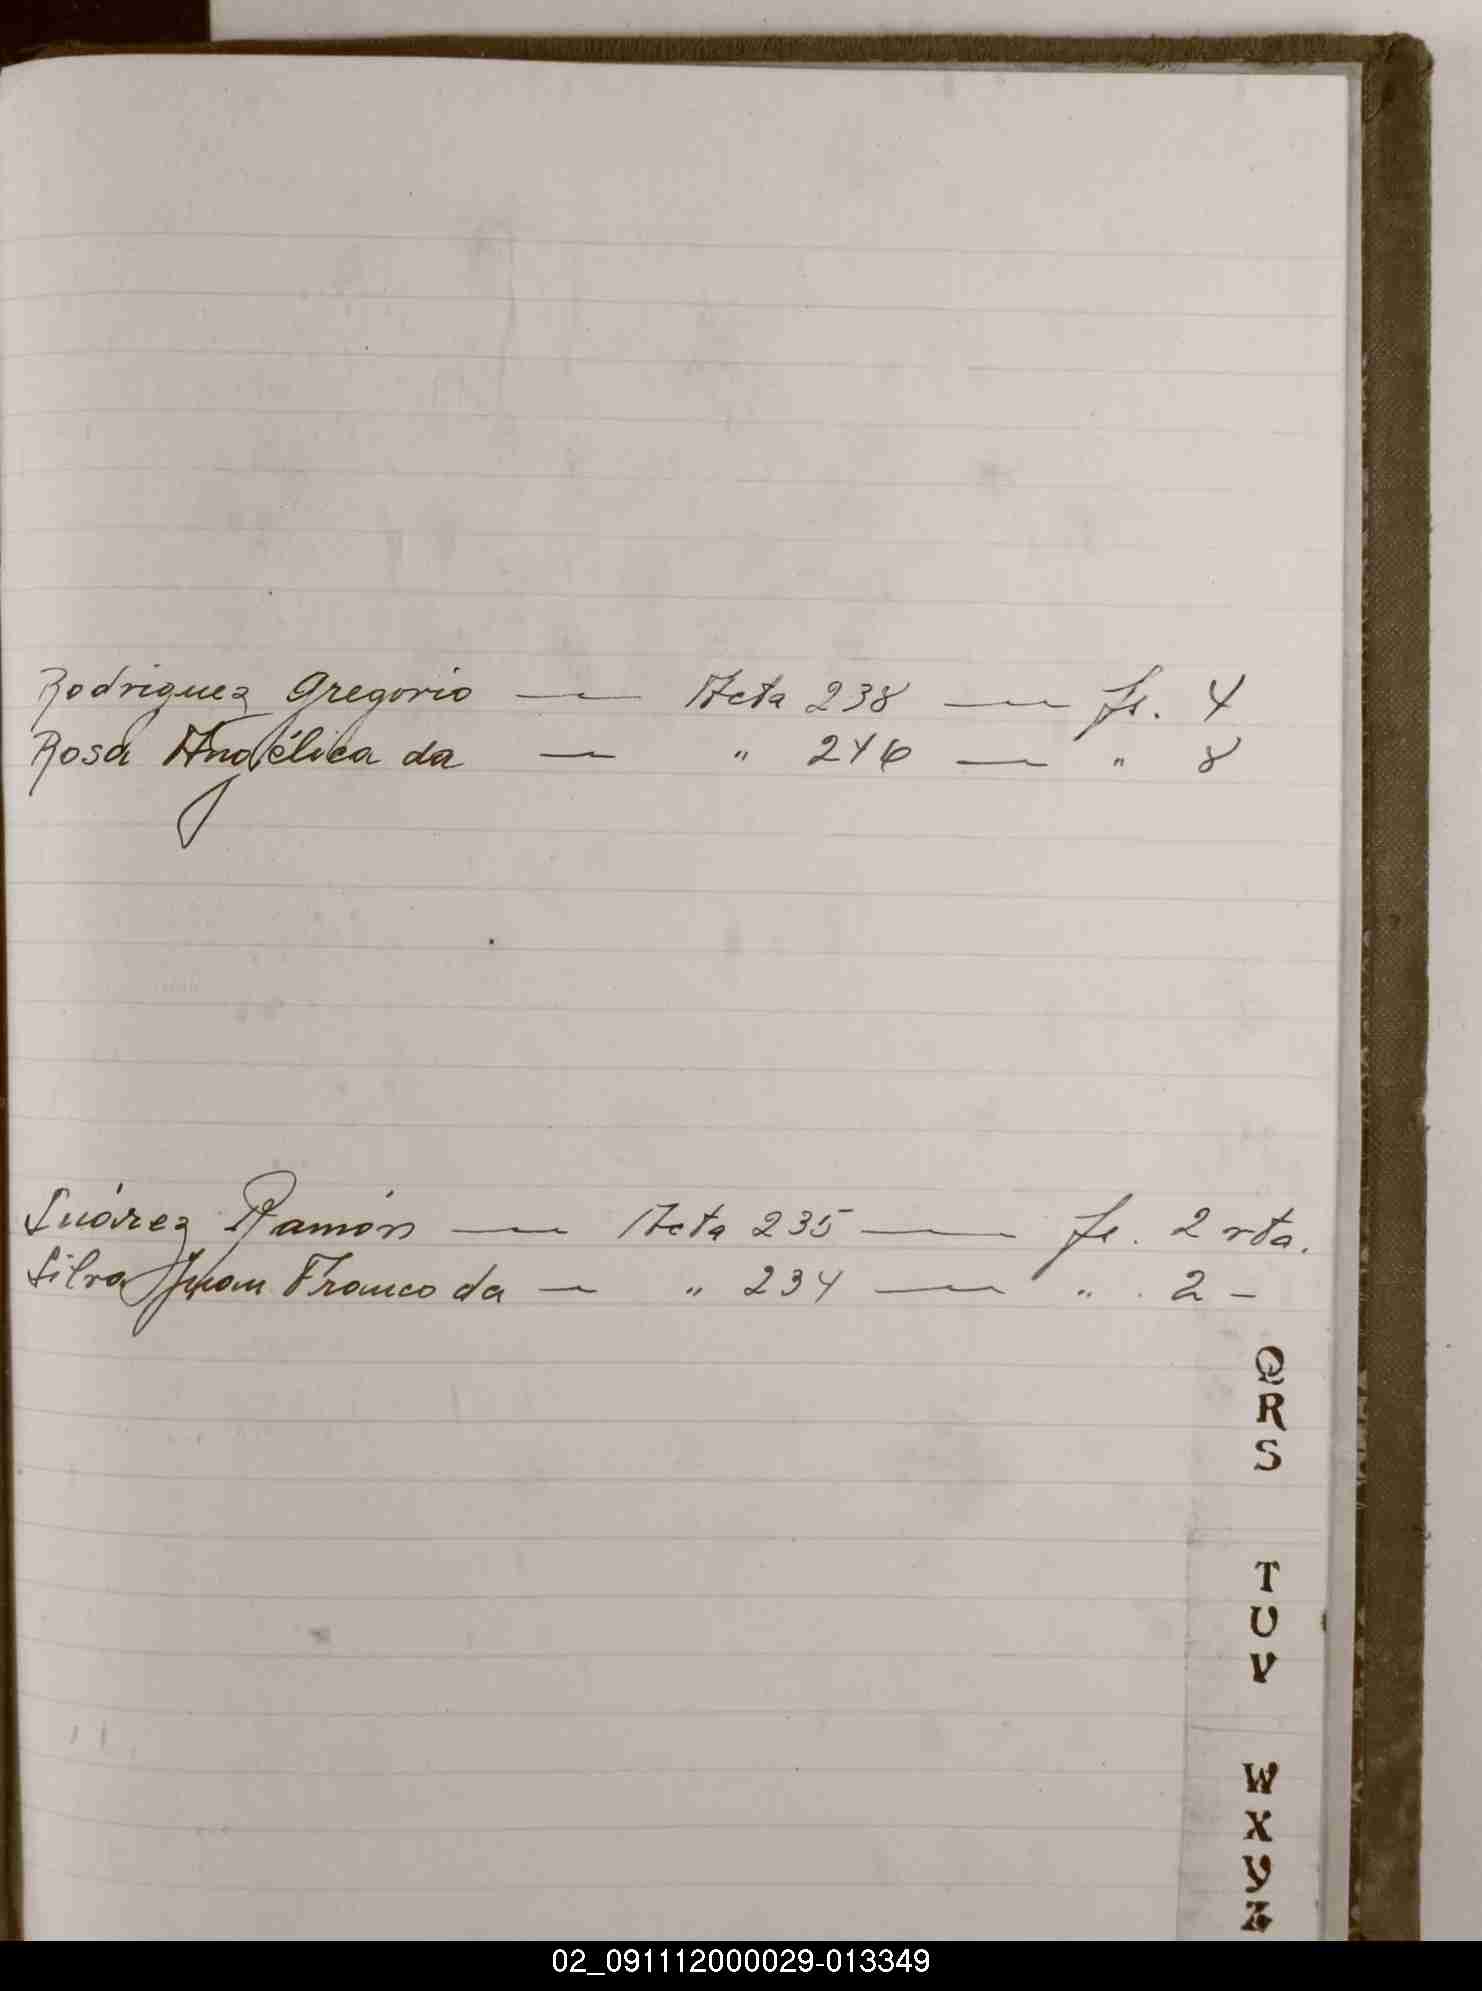 Rodriguez Gregorio — Acta 238 — fs. 4
Rosa Angélica da — " 246 — " 8
Suárez Ramón — Acta 235 — fs. 2 vta.
Silva Juan Franco da — " 234 — " . 2 -
Q
R
S
T
U
V
W
X
Y
Z
02_091112000029-013349